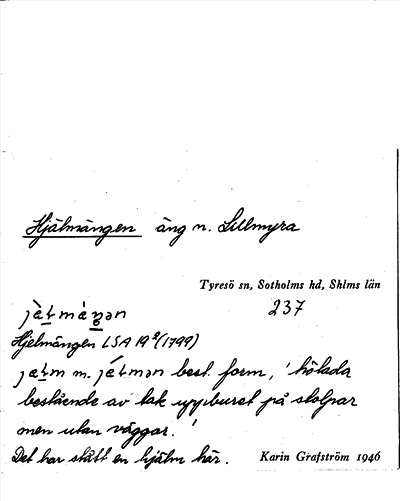 Hjälmängen äng n. Lillmyra
Tyresö sn, Sotholms hd, Shlms län
237
Hjelmängen LSA 19²(1799)
m. best. form, 'hölada
bestående av tak uppburet på stolpar
men utan väggar.'
Det har stått en hjälm här.
Karin Grafström 1946